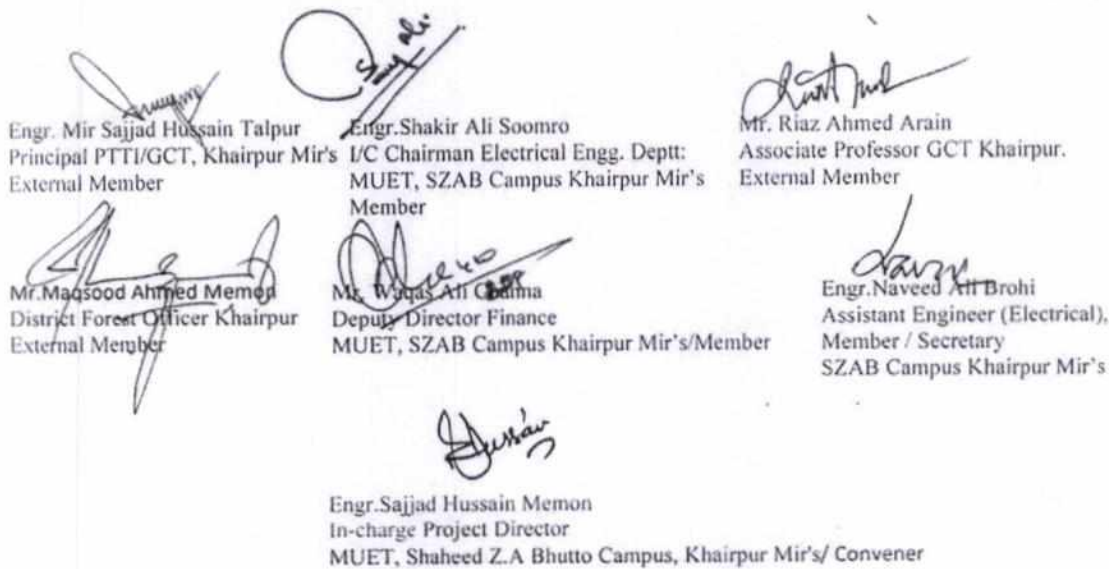 Engr. Mir Sajjad Hussain Talpur
Principal PTTI/GCT, Khairpur Mir's
External Member
Engr.Shakir Ali Soomro
I/C Chairman Electrical Engg. Deptt:
MUET, SZAB Campus Khairpur Mir's
Member
Mr. Riaz Ahmed Arain
Associate Professor GCT Khairpur.
External Member
Mr.Maqsood Ahmed Memon
District Forest Officer Khairpur
External Member
Mr. Waqas Ali
Deputy Director Finance
MUET, SZAB Campus Khairpur Mir's/Member
Engr.Naveed Ali Brohi
Assistant Engineer (Electrical),
Member / Secretary
SZAB Campus Khairpur Mir's
Hussain
Engr.Sajjad Hussain Memon
In-charge Project Director
MUET, Shaheed Z.A Bhutto Campus, Khairpur Mir's/ Convener